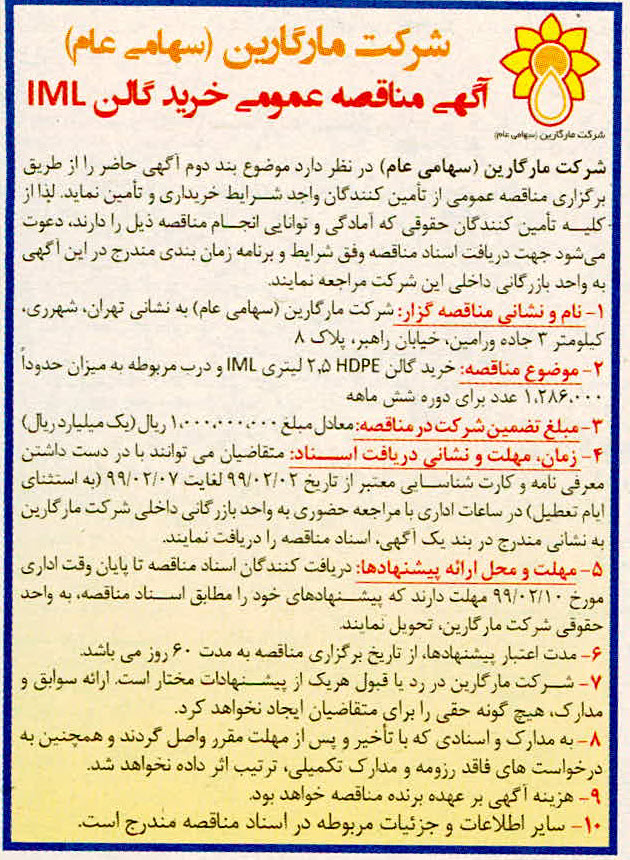 شرکت مارگارین (سهامی عام)
آگهی مناقصه عمومی خرید گالن IML
شرکت مارگارین (سهامی عام)
شرکت مارگارین (سهامی عام) در نظر دارد موضوع بند دوم آگهی حاضر را از طریق
برگزاری مناقصه عمومی از تأمین کنندگان واجد شرایط خریداری و تأمین نماید. لذا از
کلیه تأمین کنندگان حقوقی که آمادگی و توانایی انجام مناقصه ذیل را دارند، دعوت
می‌شود جهت دریافت اسناد مناقصه وفق شرایط و برنامه زمان بندی مندرج در این آگهی
به واحد بازرگانی داخلی این شرکت مراجعه نمایند.
۱- نام و نشانی مناقصه گزار: شرکت مارگارین (سهامی عام) به نشانی تهران، شهرری،
کیلومتر ۳ جاده ورامین، خیابان راهبر، پلاک ۸
۲- موضوع مناقصه: خرید گالن HDPE ۲,۵ لیتری IML و درب مربوطه به میزان حدوداً
۱,۲۸۶,۰۰۰ عدد برای دوره شش ماهه
۳- مبلغ تضمین شرکت در مناقصه: معادل مبلغ ۱,۰۰۰,۰۰۰,۰۰۰ ریال (یک میلیارد ریال)
۴- زمان، مهلت و نشانی دریافت اسناد: متقاضیان می توانند با در دست داشتن
معرفی نامه و کارت شناسایی معتبر از تاریخ ۹۹/۰۲/۰۲ لغایت ۹۹/۰۲/۰۷ (به استثنای
ایام تعطیل) در ساعات اداری با مراجعه حضوری به واحد بازرگانی داخلی شرکت مارگارین
به نشانی مندرج در بند یک آگهی، اسناد مناقصه را دریافت نمایند.
۵- مهلت و محل ارائه پیشنهادها: دریافت کنندگان اسناد مناقصه تا پایان وقت اداری
مورخ ۹۹/۰۲/۱۰ مهلت دارند که پیشنهادهای خود را مطابق اسناد مناقصه، به واحد
حقوقی شرکت مارگارین، تحویل نمایند.
۶- مدت اعتبار پیشنهادها، از تاریخ برگزاری مناقصه به مدت ۶۰ روز می باشد.
۷- شرکت مارگارین در رد یا قبول هریک از پیشنهادات مختار است. ارائه سوابق و
مدارک، هیچ گونه حقی را برای متقاضیان ایجاد نخواهد کرد.
۸- به مدارک و اسنادی که با تأخیر و پس از مهلت مقرر واصل گردند و همچنین به
درخواست های فاقد رزومه و مدارک تکمیلی، ترتیب اثر داده نخواهد شد.
۹- هزینه آگهی بر عهده برنده مناقصه خواهد بود.
۱۰- سایر اطلاعات و جزئیات مربوطه در اسناد مناقصه مندرج است.